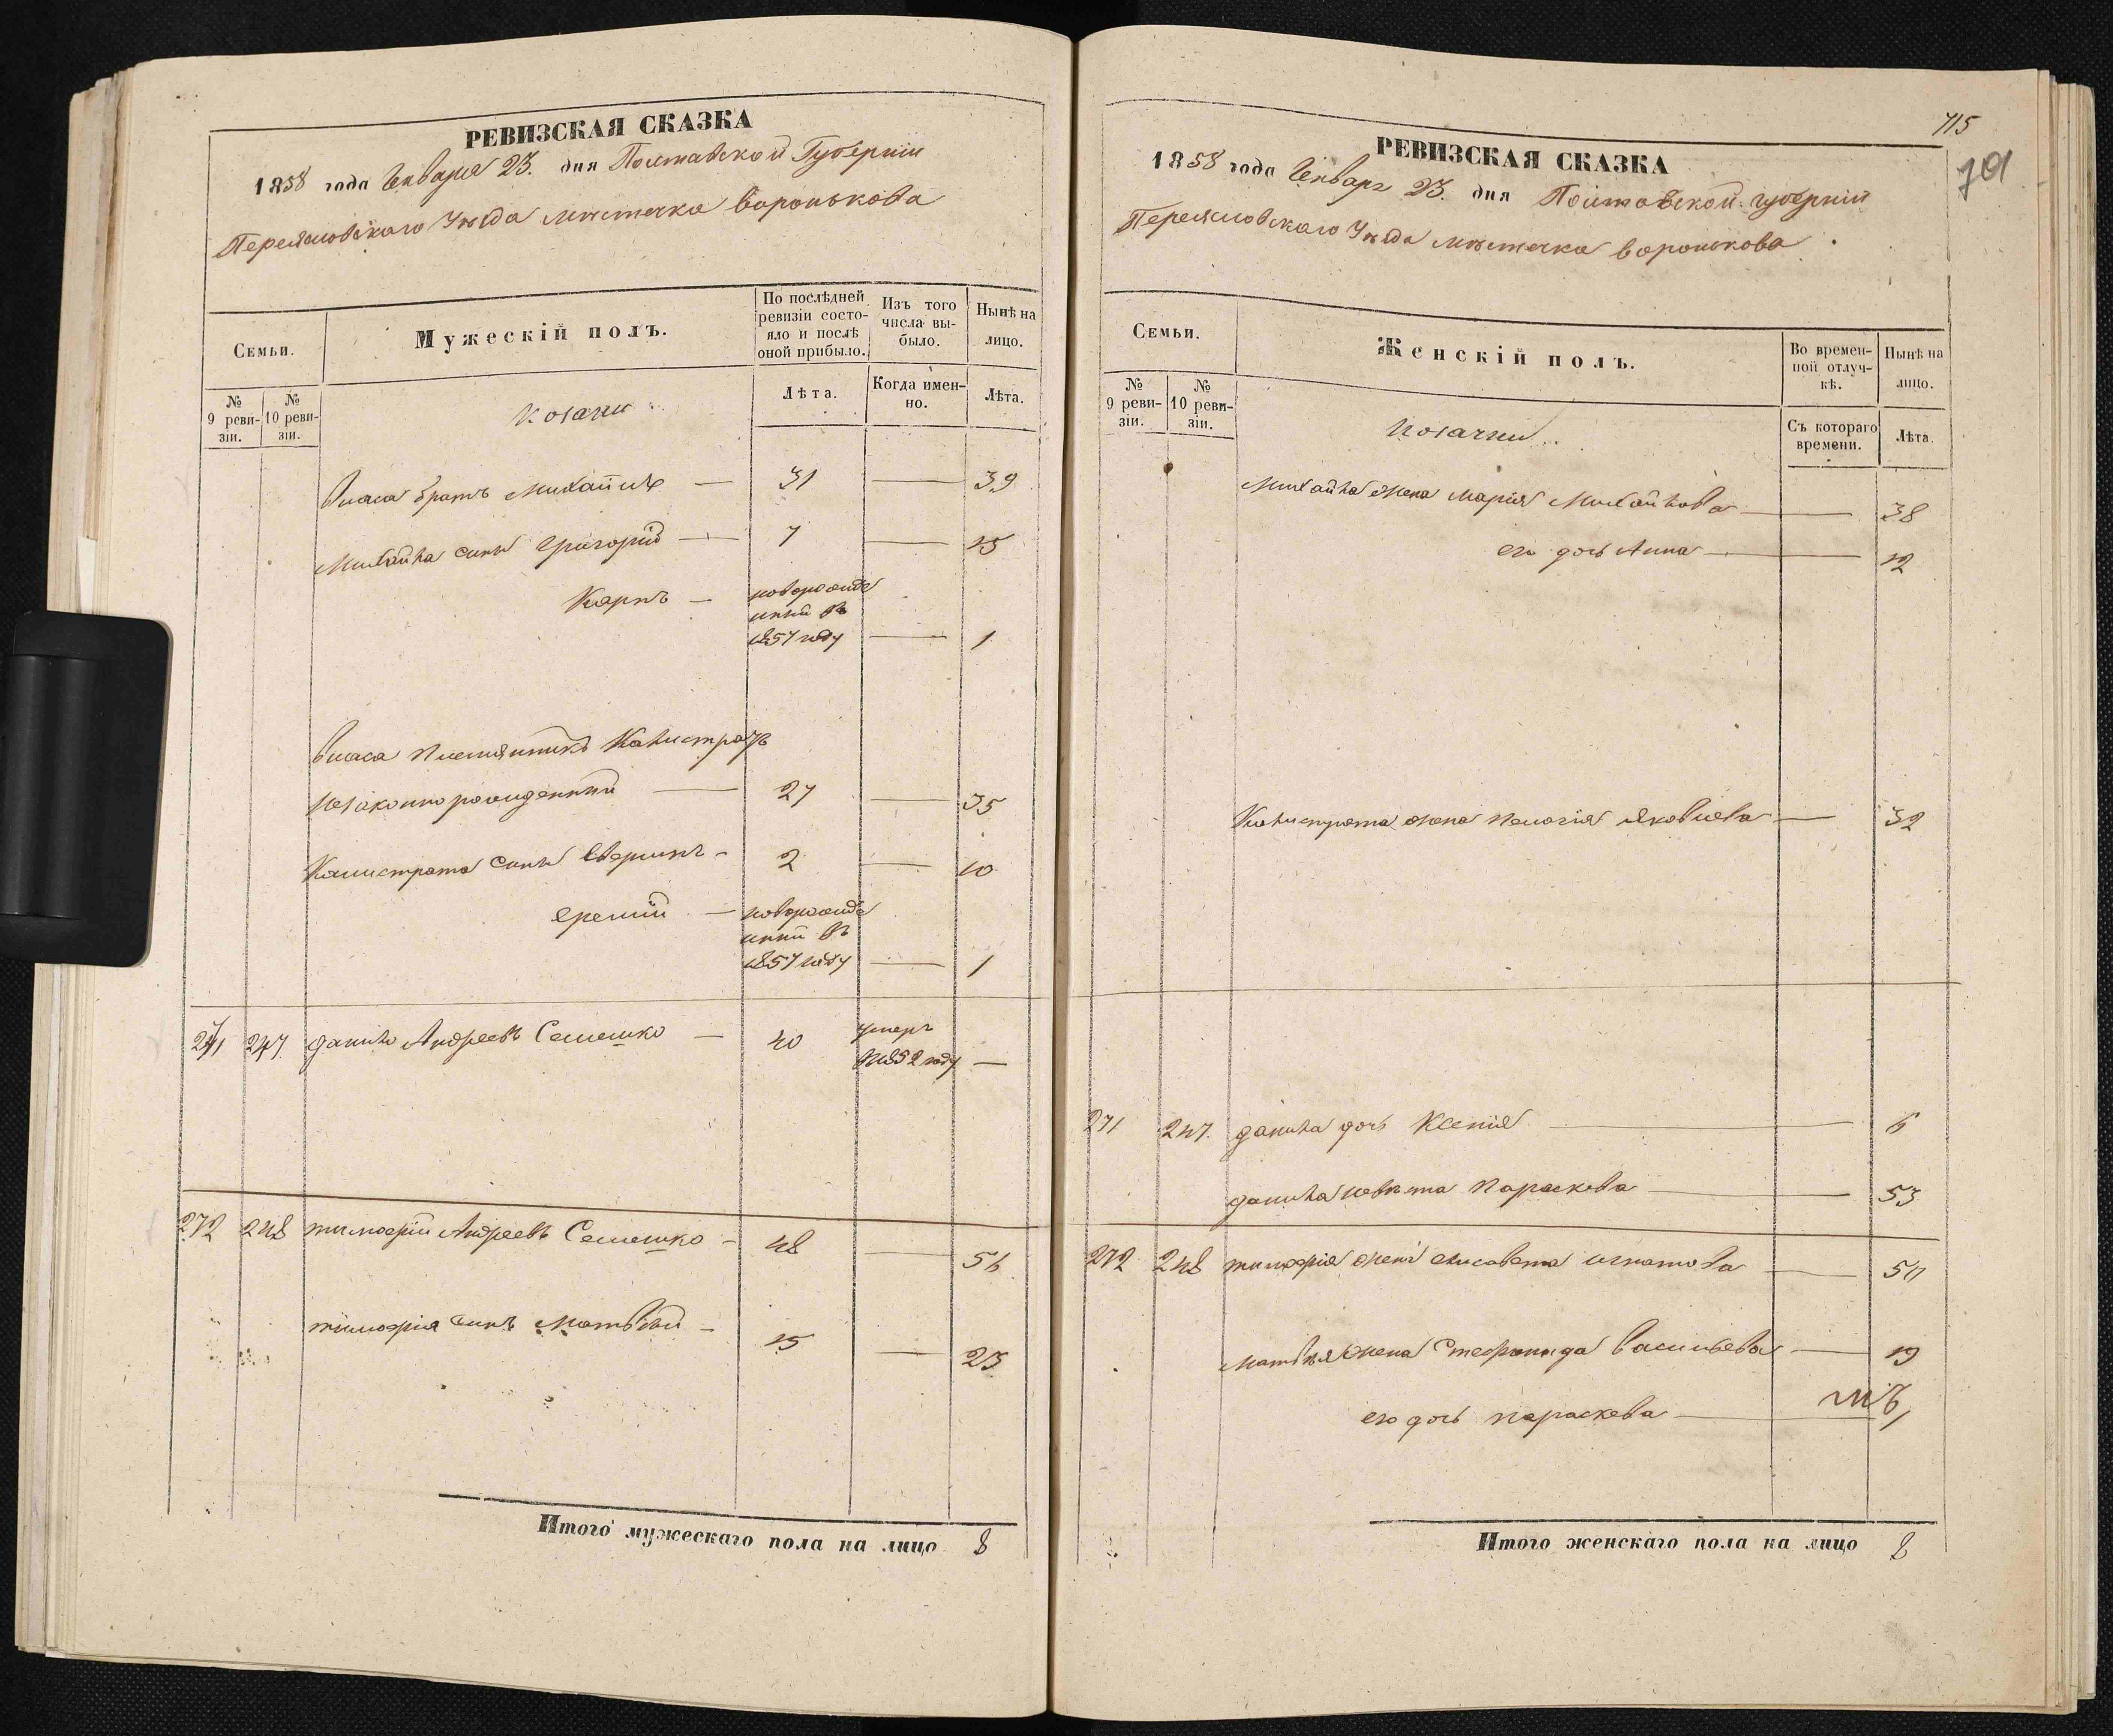 РЕВИЗСКАЯ СКАЗКА
1858 года Генваря 23. дня Полтавской Губерніи
Переяславскаго Уѣзда мѣстечка Воронькова
Семьи.
Мужескій полъ.
По послѣдней ревизіи состояло и послѣ оной прибыло.
Изъ того числа выбыло.
Нынѣ на лицо.
№ 9 ревизіи.
№ 10 ревизіи.
козаки
Лѣта.
Когда именно.
Лѣта.
Власа братъ Михайло — 31 — 39
Михайла сынъ Григорій — 7 — 15
Карпъ — новорожде
нный въ
1857 году — 1
Власа племянникъ Калистратъ
незаконнорожденный — 27 — 35
Калистрата сынъ — 2 — 10
Еремій — новорожде
нный въ
1857 году — 1
271 247 Данило Андреевъ Семешко — 40 умеръ
въ 1852 году —
272 248 Тимофій Андреевъ Семешко — 48 — 56
Тимофія сынъ Матвѣй — 15 — 23
Итого мужескаго пола на лицо 8
715
701
РЕВИЗСКАЯ СКАЗКА
1858 года Генваря 23. дня Полтавской губерніи
Переяславскаго Уѣзда мѣстечка Воронькова
Семьи.
Женскій полъ.
Во временной отлучкѣ.
Нынѣ на лицо.
№ 9 ревизіи.
№ 10 ревизіи.
козачки
Съ котораго времени.
Лѣта.
Михайла жена Марія Михайлова — 38
его дочь Анна — 12
Калистрата жена Пелагія Яковлева — 32
271 247. Данила дочь Ксенія — 6
Данила невѣстка Параскева — 53
272 248 Тимофія жена Елисавета Игнатова — 50
Матвѣя жена Стефанида Васильева — 19
его дочь Параскева —
Итого женскаго пола на лицо 8